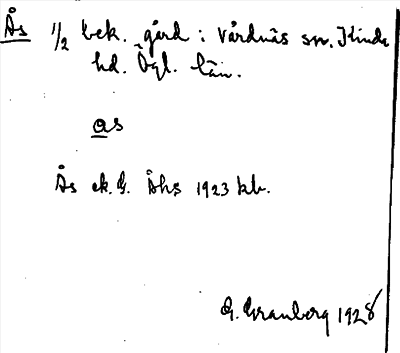 Ås 1/2 bek. gård: Vårdnäs sn. Kinda
hd. Ögl. län.
as
Ås ek. G. Åhs 1923 kb.
G. Granberg 1928